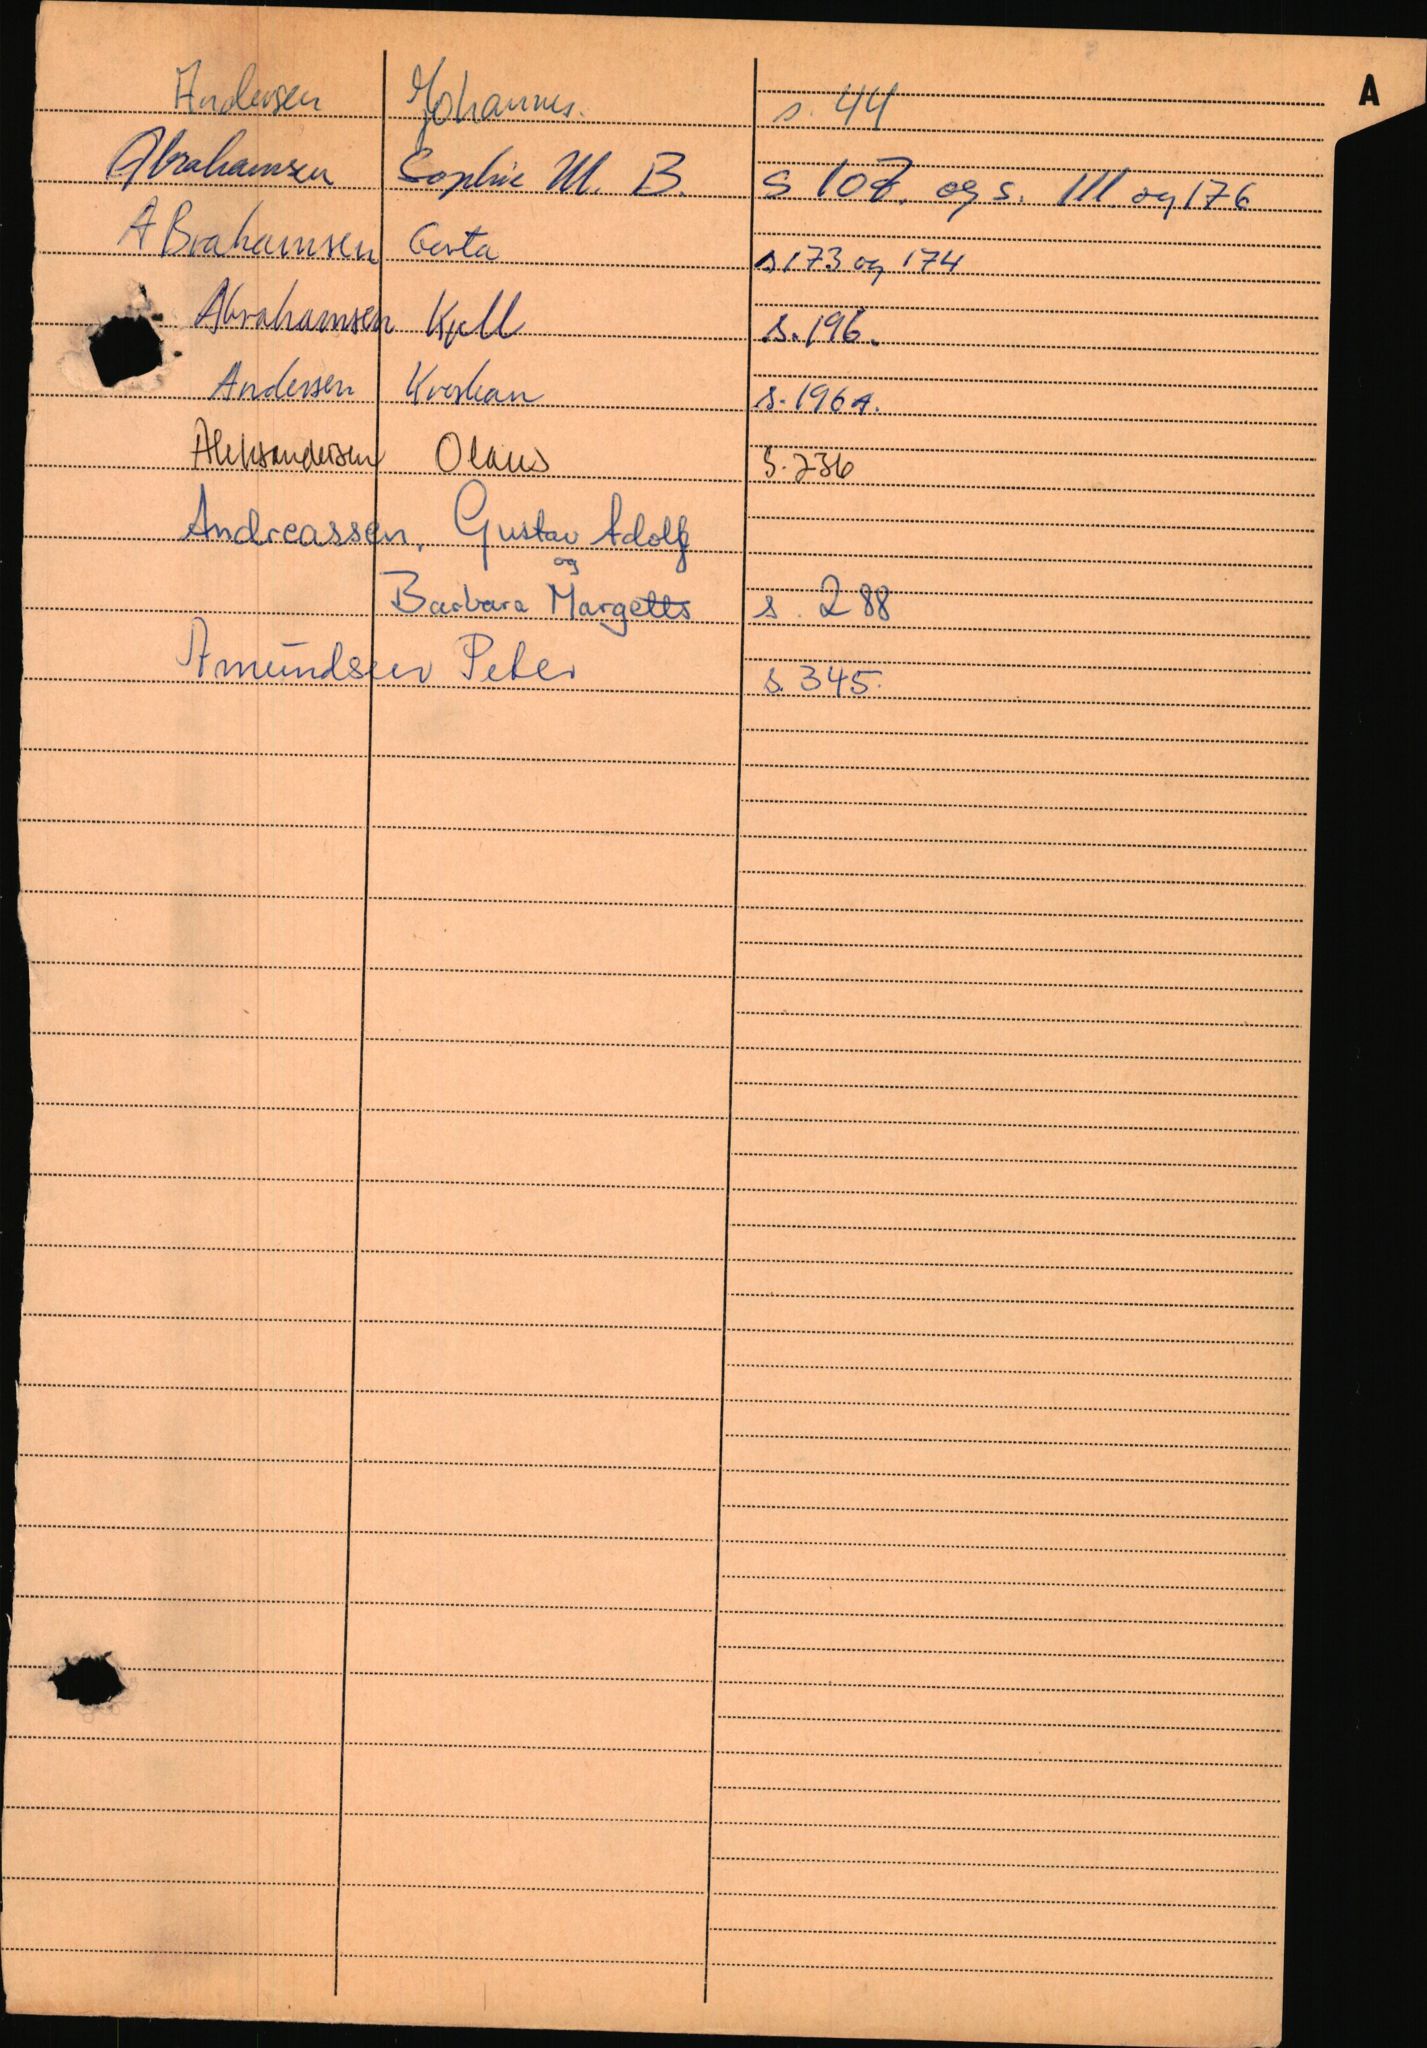 A
Andersen Johannes. s. 44
Abrahamsen Sophie M. B. s 107. og s. 111. og 176
ABrahamsen Gerta s 173 og 174
Abrahamsen Kjell s. 196.
Andersen s. 196A.
Aleksandersen Olaus s. 236
Andreassen, Gustav Adolf
og
Barbara Margetts s. 288
Amundsen Peter s. 345.